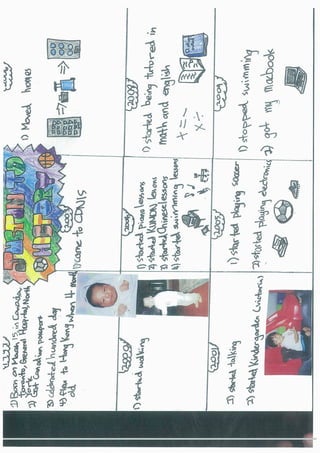 1) Born on March 15, in Canada
Toronto, General Hospital, North
York
2) Got Canadian passport
3) celebrated hundred day
4) flew to Hong Kong when 4 months
old
2000
1) started walking
2001
1) started talking
2) started Kindergarden (Victoria)
HISTORY
2007
1) came to CDNIS
1) started Piano lessons
2) started KUMON lessons
3) started Chinese lessons
4) started swimming lessons
2005
1) started playing soccer
2) started playing electronics
1) Moved homes
2008
1) started being tutored in
math and english
+ = -
x ÷
2009
1) stopped swimming
2) got my macbook